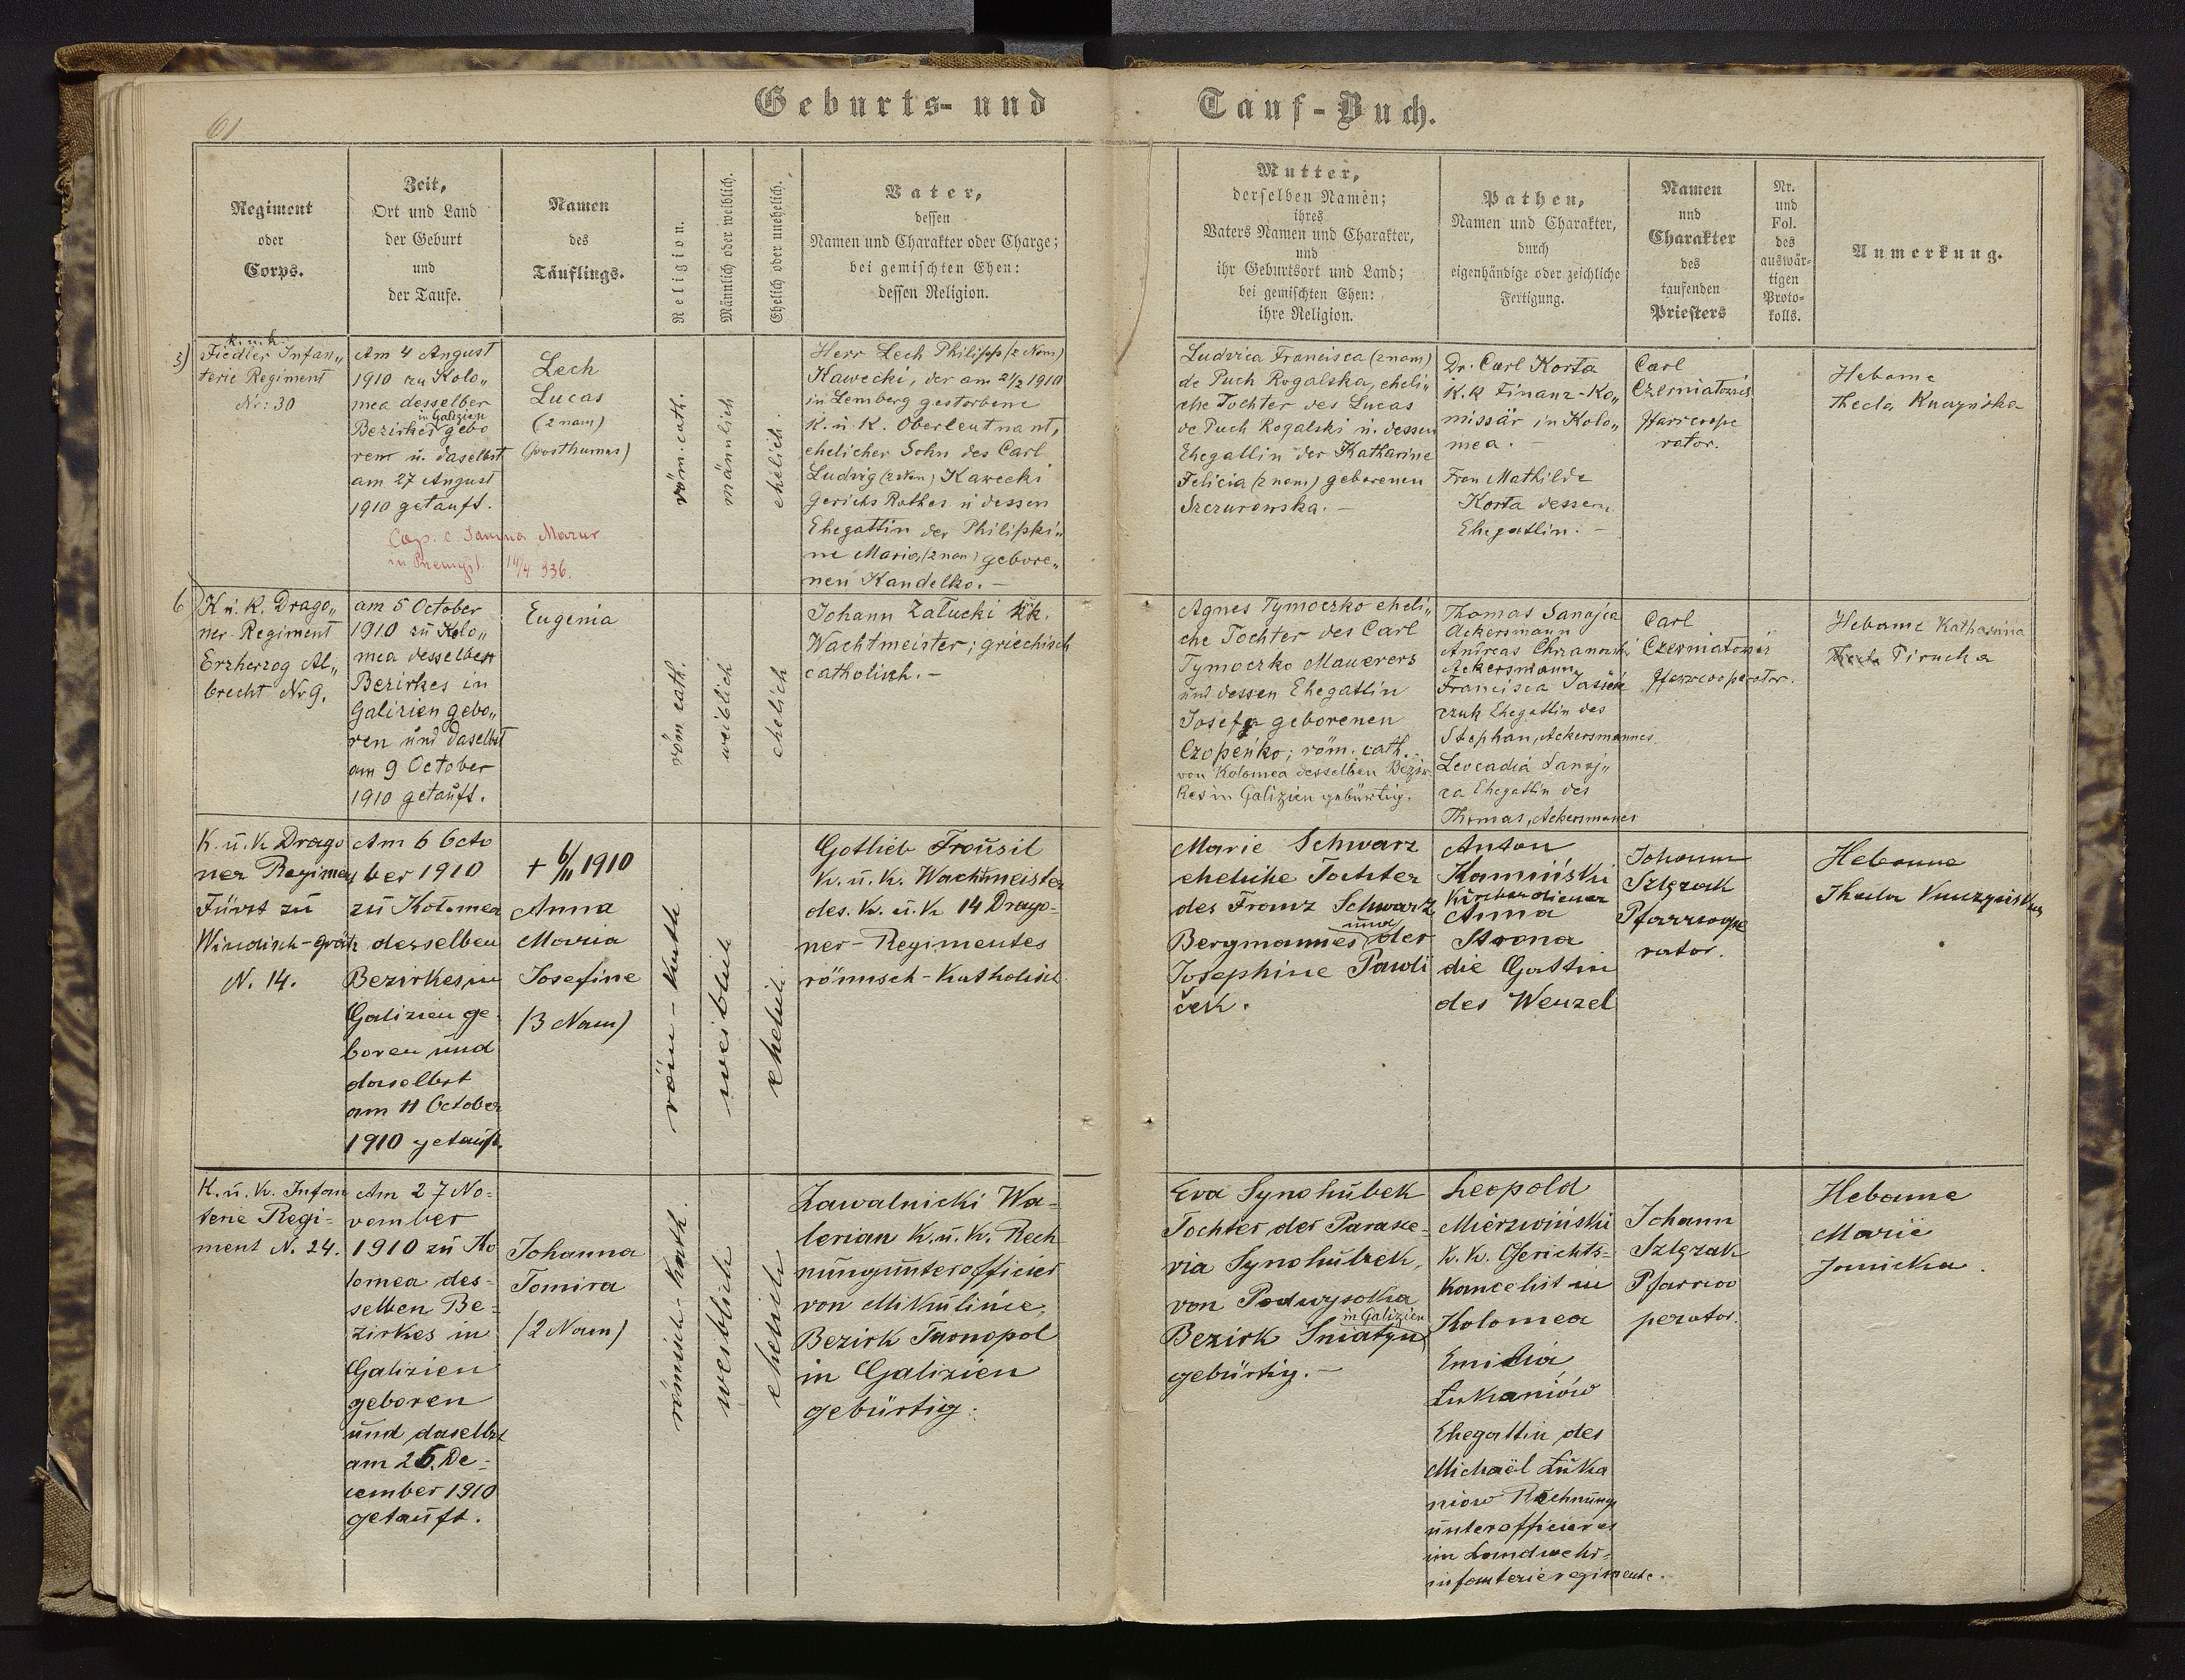 Geburts- und Tauf-Buch.
61
Regiment
oder
Corps.
Zeit,
Ort und Land
der Geburt
und
der Taufe.
Namen
des
Täuflings.
Religion.
Männlich oder weiblich.
Ehelich oder unehelich.
Vater,
dessen
Namen und Charakter oder Charge;
bei gemischten Ehen:
dessen Religion.
Mutter,
derselben Namen;
ihres
Vaters Namen und Charakter,
und
ihr Geburtsort und Land;
bei gemischten Ehen:
ihre Religion.
Pathen,
Namen und Charakter,
durch
eigenhändige oder zeichliche
Fertigung.
Namen
und
Charakter
des
taufenden
Priesters
Nr.
und
Fol.
des
auswär-
tigen
Proto-
kolls.
Anmerkung.
5)
K. u. k.
Fiedler Infan„
terie Regiment
Nr: 30
Am 4 August
1910 zu Kolo„
mea desselben
in Galizien
Bezirkes gebo
ren u. daselbst
am 27 August
1910 getauft.
Lech
Lucas
(2 nam)
(posthumus)
Cop. c. Mazur
14/4 936.
röm. cath.
männlich
ehelich.
Herr Lech Philipp (2 Nam)
Kawecki, der am 21/2 1910
in Lemberg gestorbene
K. u. K. Oberleutnant,
ehelicher Sohn des Carl
Ludwig (2 Nam) Kawecki
Gerichts Rathes u dessen
Ehegattin der Philippi„
ne Maria (2 nam) gebore„
nen Kandelko. –
Ludvica Francisca (2 nam)
de Puch Rogalska, eheli„
che Tochter des Lucas
de Puch Rogalski u. dessen
Ehegattin der Katharine
Felicia (2 nam) geborenen
Szczurowska. –
Dr. Carl Korta
K.K Finanz-Ko„
missär in Kolo„
mea. –
Frau Mathilde
Korta dessen
Ehegattin. –
Carl
Czerniatowicz
Pfarrcoope
rator.
Hebame
Thecla Knazyńska
6
K u. K. Drago„
ner-Regiment
Erzherzog Al„
brecht Nr 9.
am 5 October
1910 zu Kolo„
mea desselben
Bezirkes in
Galizien gebo„
ren und daselbst
am 9 October
1910 getauft.
Eugenia
röm cath.
weiblich
ehelich
Johann Załucki kk.
Wachtmeister; griechisch
catholisch. –
Agnes Tymoczko eheli„
che Tochter des Carl
Tymoczko Mauerers
und dessen Ehegattin
Josefa geborenen
Czopeńko; röm. cath.
von Kolomea desselben Bezir
kes in Galizien gebürtig.
Thomas Sanojca
Ackersmann
Andreas Chrzanowski
Ackersmann
Francisca Jasieńc
czuk Ehegattin des
Stephan, Ackersmannes
Leocadia Sanoj„
ca Ehegattin des
Thomas, Ackersmannes
Carl
Czerniatowicz
Pfarrcooperator.
Hebame Katharina
Thecla Pirucka
K. u. K Drago
ner Regiment
Fürst zu
Windisch-grätz
N. 14.
Am 6 Octo
ber 1910
zu Kolomea
desselben
Bezirkes in
Galizien ge
boren und
daselbst
am 11 October
1910 getauft.
+ 6/11 1910
Anna
Maria
Josefine
(3 Nam)
röm - Kath.
weiblich
ehelich.
Gotlieb Frousil
K. u. K. Wachtmeister
des. K. u. K 14 Drago-
ner-Regimentes
römisch-Katholisch
Marie Schwarz
eheliche Tochter
des Franz Schwarz
und
Bergmannes der
Josephine Pawli
ček.
Anton
Kamiński
Kirchendiener
Anna
Strona
die Gattin
des Wenzel
Johann
Szlęzak
Pfarrcoope
rator.
Hebamme
Thecla
K. u. K. Infan
terie Regi-
ment N. 24.
Am 27 No-
vember
1910 zu Ko
lomea des-
selben Be-
zirkes in
Galizien
geboren
und daselbst
am 26. De-
cember 1910
getauft.
Johanna
Tomira
(2 Nam)
römisch Kath.
weiblich
ehelich
Zawalnicki Wa-
lerian K. u. K. Rech-
nungunterofficier
von Mikulińce
Bezirk Tarnopol
in Galizien
gebürtig.
Eva Synohubek
Tochter der Paraske-
via Synohubek,
von Podwysoka
in Galizien
Bezirk Śniatyn
gebürtig. –
Leopold
Mierzwiński
K. K. Gerichts-
kancelist in
Kolomea
Emilia
Łukaniów
Ehegattin des
Michaël Łuka
niow Rechnung
unterofficieres
im Landwehr-
infanterieregimente.
Johann
Szlęzak
Pfarrcoo
perator.
Hebame
Marie
Janicka.